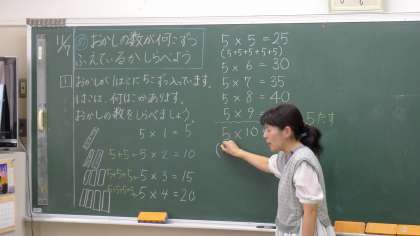 11/7
め おかしの数が何こずつ
ふえているかしらべよう
1 おかしが1はこに5こずつ入っています。
はこは、何はこかあります。
おかしの数をしらべましょう。
5 × 1 = 5
5+5= 5 × 2 = 10
5+5+5= 5 × 3 = 15
5+5+5+5= 5 × 4 = 20
5 × 5 = 25
(5+5+5+5+5)
5 × 6 = 30
5 × 7 = 35
5 × 8 = 40
5 × 9
5 × 10
5たす